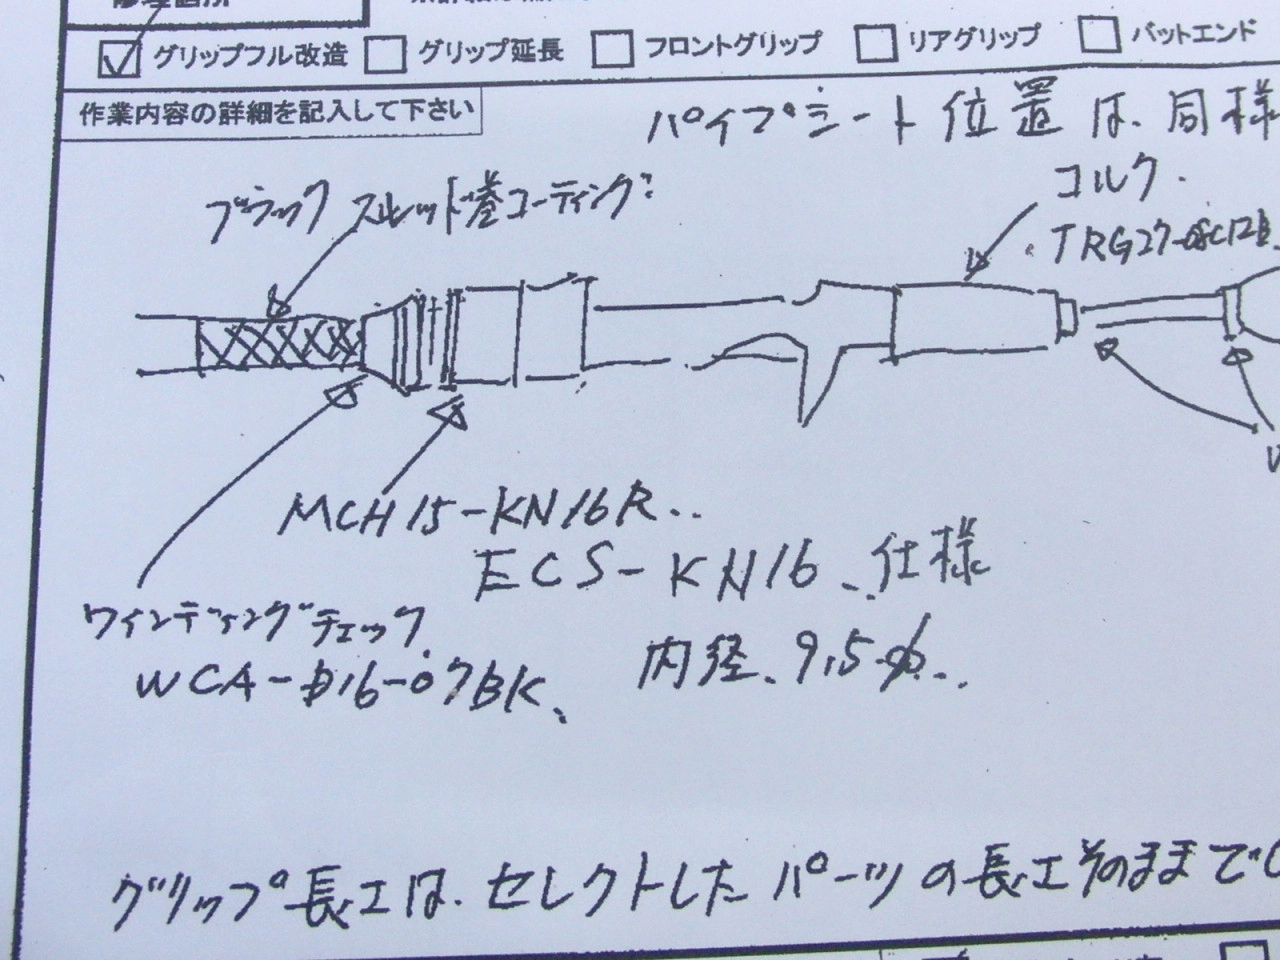 グリップフル改造 グリップ延長 フロントグリップ リアグリップ バットエンド
作業内容の詳細を記入して下さい
パイプシート位置は、同様
コルク.
ブラック スレッド巻コーティング
MCH15-KN16R..
ECS-KN16、仕様
ワインディングチェック
内径、9.5φ...
グリップ長エは、セレクトしたパーツの長エそのままで